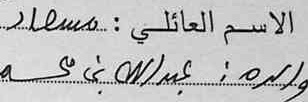 الاسم العائلي : مسعاد
والده : عبدالله بن محمد